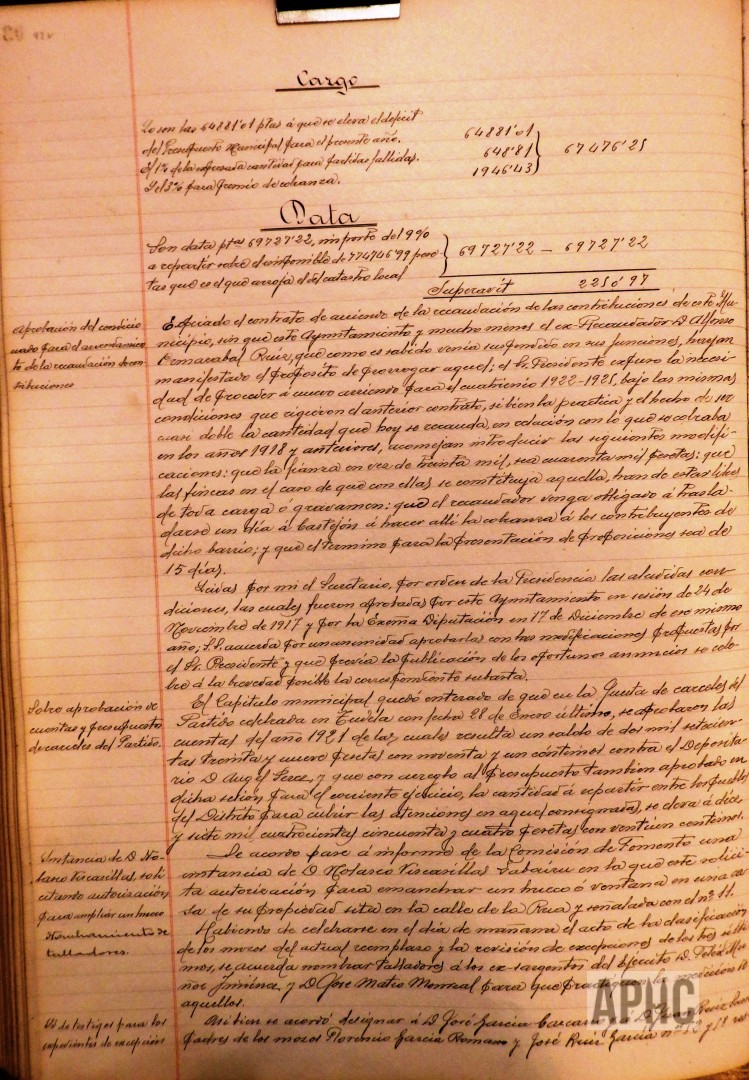 Cargo
Lo son las 64881'01 ptas á que se eleva el deficit
del Presupuesto Municipal para el presente año.
El 1% de la expresada cantidad para partidas fallidas.
Y el 3% para premio de cobranza.
64881'01
648'81
1946'43
67476'25
Data
Son data ptas 69727'22, importe del 9%
a repartir sobre el imponible de 774746'99 pese
tas que es el que arroja el del catastro local
69727'22 — 69727'22
Superavit 2250'97
Aprobación del condicio
nado para el arrendamien
to de la recaudación de con
tribuciones
Expirado el contrato de arriendo de la recaudación de las contribuciones de este Mu
nicipio, sin que este Ayuntamiento y mucho menos el ex-Recaudador D. Alfonso
Ruiz, que como es sabido venia suspendido en sus funciones, hayan
manifestado el propósito de prorrogar aquel; el Sr. Presidente expuso la necesi
dad de proceder á nuevo arriendo para el cuatrienio 1922-1925, bajo las mismas
condiciones que rigieron el anterior contrato, si bien la practica y el hecho de ser
cuasi doble la cantidad que hoy se recauda, en relación con lo que se cobraba
en los años 1918 y anteriores, aconsejan introducir las siguientes modifi
caciones: que la fianza en vez de treinta mil, sea cuarenta mil pesetas: que
las fincas en el caso de que con ellas se constituya aquella, han de estar libres
de toda carga ó gravamen: que el recaudador venga obligado á trasla
darse un dia á Castejón á hacer alli la cobranza á los contribuyentes de
dicho barrio; y que el termino para la presentación de proposiciones sea de
15 dias.
Leidas por mi el Secretario, por orden de la Presidencia las aludidas con
diciones, las cuales fueron aprobadas por este Ayuntamiento en sesión de 24 de
Noviembre de 1917 y por la Excma Diputación en 17 de Diciembre de ese mismo
año; S.S. acuerda por unanimidad aprobarlas con las modificaciones propuestas por
el Sr. Presidente y que previa la publicación de los oportunos anuncios se cele
bre á la brevedad posible la correspondiente subasta.
Sobre aprobación de
cuentas y presupuesto
de carceles del Partido.
El Capitulo municipal quedó enterado de que en la Junta de carceles del
Partido celebrada en Tudela con fecha 28 de Enero último, se aprobaron las
cuentas del año 1921 de las cuales resulta un saldo de dos mil setecien
tas treinta y nueve pesetas con noventa y un céntimos contra el Deposita
rio D. Angel Perez, y que con arreglo al presupuesto tambien aprobado en
dicha sesión para el corriente ejercicio, la cantidad á repartir entre los pueblos
del Distrito para cubrir las atenciones en aquel consignadas, se eleva á diez
y siete mil cuatrocientas cincuenta y cuatro pesetas con ventiún céntimos.
Instancia de D. No
lasco Viscasillas, soli
citando autorización
para ampliar un hueco
Se acordo pase á informe de la Comisión de Fomento una
instancia de D. Nolasco Viscasillas en la que este solici
ta autorización para ensanchar un hueco ó ventana en una ca
sa de su propiedad sita en la calle de la Rua y señalada con el nº 11.
Nombramiento de
talladores.
Habiendo de celebrarse en el dia de mañana el acto de la clasificación
de los mozos del actual reemplazo y la revisión de excepciones de los tres últi
mos, se acuerda nombrar talladores á los ex-sargentos del Ejercito D.
Jiménez y D. José Matio Monreal para que practiquen la medición de
aquellos.
Id de testigos para los
expedientes de excepción
Asi bien se acordó designar á D. José Garcia y D. Juan Ruiz
padres de los mozos Florencio Garcia Romano y José Ruiz Garcia
APHC